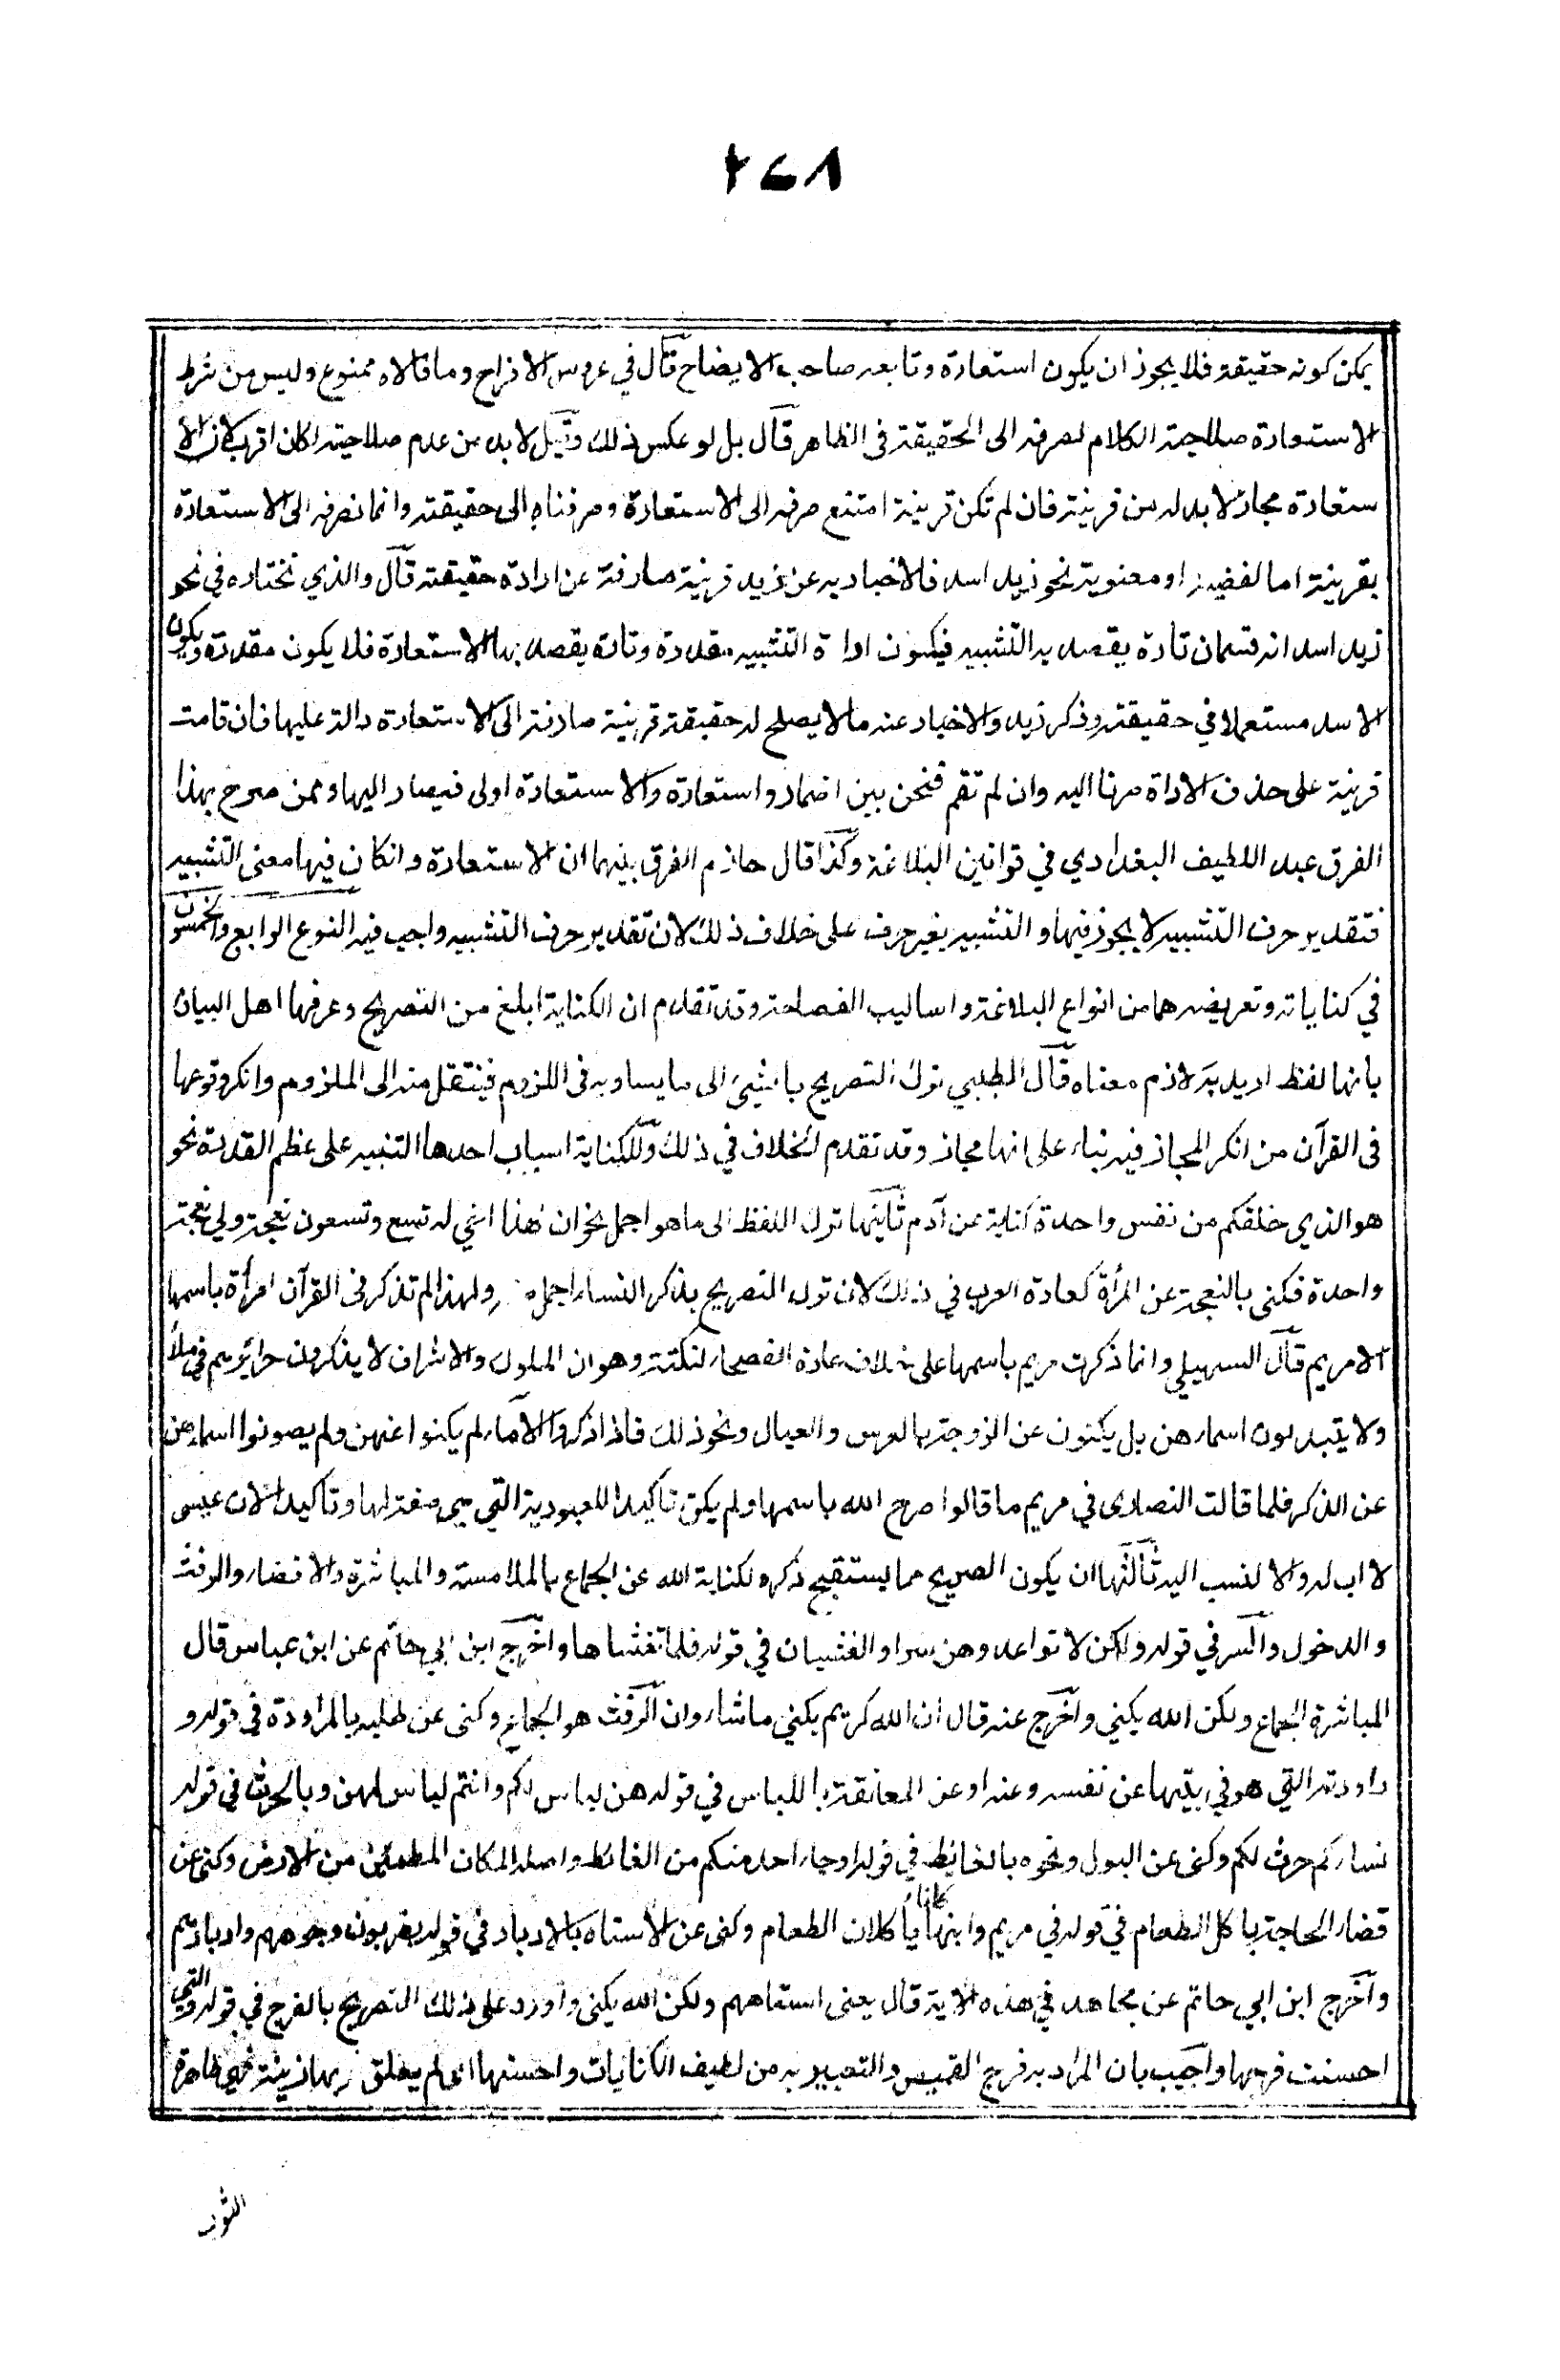 ٢٤٨
يمكن كونه حقيقة فلا يجوز ان يكون استعارة وتابعه صاحب الايضاح قال في عروس الافراح وما قالاه ممنوع وليس من شرط
الاستعارة صلاحية الكلام لصرفه الى الحقيقة فى الظاهر قال بل لو عكس ذلك وقيل لا بد من عدم صلاحيته لكان اقرب لان الا
ستعارة مجاز لا بد له من قرينة فان لم تكن قرينة امتنع صرفه الى الاستعارة وصرفناه الى حقيقته وانما نصرفه الى الاستعارة
بقرينة اما لفظية او معنوية نحو زيد اسد فالاخبار به عن زيد قرينة صارفة عن ارادة حقيقته قال والذي نختاره في نحو
زيد اسد انه قسمان تارة يقصد به التشبيه فيكون اداة التشبيه مقدرة وتارة يقصد بها الاستعارة فلا يكون مقدرة ويكون
الاسد مستعملا في حقيقته وذكر زيد والاخبار عنه ما لا يصلح له حقيقة قرينة صارفة الى الاستعارة دالة عليها فان قامت
قرينة على حذف الاداة صرنا اليه وان لم تقم فنحن بين اضمار واستعارة والاستعارة اولى فيصار اليها وممن صرح بهذا
الفرق عبد اللطيف البغدادي في قوانين البلاغة وكذا قال حازم الفرق بينهما ان الاستعارة وانكان فيها معنى التشبيه
فتقدير حرف التشبيه لا يجوز فيها والتشبيه بغير حرف على خلاف ذلك لان تقدير حرف التشبيه واجب فيه النوع الرابع والخمسون
في كناياته وتعريضه هما من انواع البلاغة واساليب الفصاحة وقد تقدم ان الكناية ابلغ من التصريح وعرفها اهل البيان
بانها لفظ اريد به لازم معناه قال الطيبي ترك التصريح بالشيء الى ما يساويه فى اللزوم فينتقل منه الى الملزوم وانكر وقوعها
فى القرآن من انكر المجاز فيه بناء على انها مجاز وقد تقدم الخلاف في ذلك وللكناية اسباب احدها التنبيه على عظم القدرة نحو
هو الذي خلقكم من نفس واحدة كناية عن آدم ثانيها ترك اللفظ الى ما هو اجمل نحو ان هذا اخي له تسع وتسعون نعجة ولي نعجة
واحدة فكنى بالنعجة عن المرأة كعادة العرب في ذلك لان ترك التصريح بذكر النساء اجمل ولهذا لم تذكر فى القرآن امرأة باسمها
الا مريم قال السهيلي وانما ذكرت مريم باسمها على خلاف عادة الفصحاء لنكتة وهو ان الملوك والاشراف لا يذكرون حرائرهم في ملأ
ولا يتبذلون اسماءهن بل يكنون عن الزوجة بالعرس والعيال ونحو ذلك فاذا ذكروا الاماء لم يكنوا عنهن ولم يصونوا اسماءهن
عن الذكر فلما قالت النصارى في مريم ما قالوا صرح الله باسمها ولم يكن تاكيدا للعبودية التي هي صفة لها وتاكيدا لان عيسى
لا اب له والا لنسب اليه ثالثها ان يكون الصريح مما يستقبح ذكره لكناية الله عن الجماع بالملامسة والمباشرة والافضاء والرفث
والدخول والسر في قوله ولكن لا تواعدوهن سرا والغشيان في قوله فلما تغشاها واخرج ابن ابي حاتم عن ابن عباس قال
المباشرة الجماع ولكن الله يكني واخرج عنه قال ان الله كريم يكني ما شاء وان الرفث هو الجماع وكنى عن طلبه بالمراودة في قوله و
راودته التي هو في بيتها عن نفسه وعنه او عن المعانقة باللباس في قوله هن لباس لكم وانتم لباس لهن وبالحرث في قوله
نساؤكم حرث لكم وكنى عن البول ونحوه بالغايط في قوله او جاء احد منكم من الغائط واصله المكان المطمئن من الارض وكنى عن
قضاء الحاجة باكل الطعام في قوله في مريم وابنها كانا يأكلان الطعام وكنى عن الاستاه بالادبار في قوله يضربون وجوههم وادبارهم
واخرج ابن ابي حاتم عن مجاهد في هذه الاية قال يعنى استاههم ولكن الله يكنى واورد على ذلك التصريح بالفرج في قوله والتي
احصنت فرجها واجيب بان المراد به فرج القميص والتعبير به من لطيف الكنايات واحسنها اي لم يعلق بها ريبة فهي طاهرة
الثوب